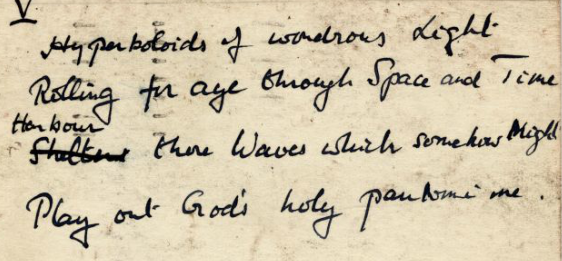 V
Hyperboloids of wondrous Light
Rolling for aye through Space and Time
Harbour
Shelter those Waves which somehow Might
Play out God's holy pantomime.